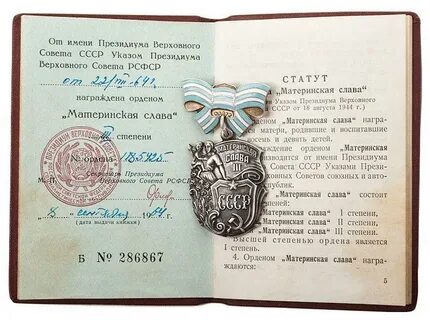 От имени Президиума Верховного
Совета СССР Указом Президиума
Верховного Совета РСФСР
от 22/III-64г.
награждена орденом
„Материнская слава"
III степени
№ ордена 185425
М. П.
Секретарь Президиума
Верховного Совета РСФСР
(дата выдачи книжки)
Б № 286867
МАТЕРИНСКАЯ
СЛАВА
СССР
СТАТУТ
„Материнская слава"
Указом Президиума Верховного
СССР от 18 августа 1944 г.)
„Материнская слава"
матери, родившие и воспитавшие
восемь и девять детей.
орденом
производится от имени Прези-
Советов союзных и авто-
„Материнская слава" состоит
степеней:
„Материнская слава" I степени,
„Материнская слава" II степени,
„Материнская слава" III степени.
Высшей степенью ордена является
I степень.
4. Орденом „Материнская слава"
награждаются:
5